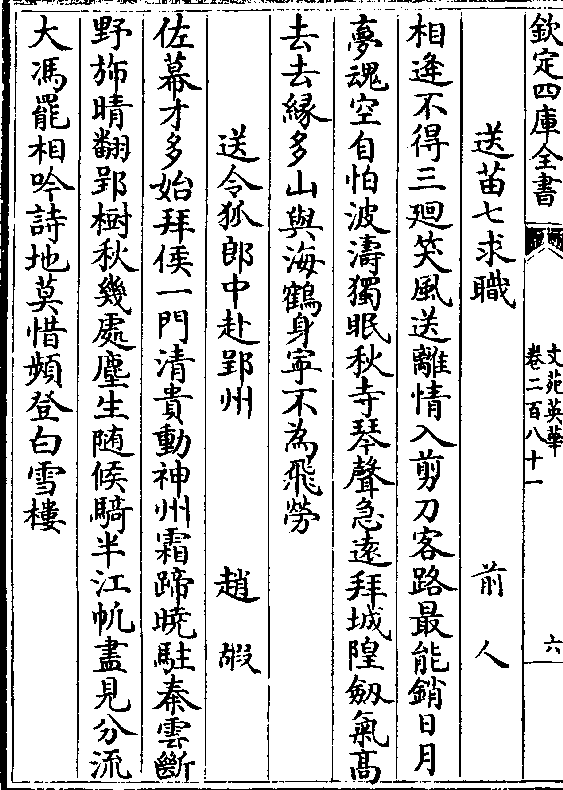 欽定四庫全書
文苑英華
卷二百八十一
六
送苗七求職 前人
相逢不得三廻笑風送離情入剪刀客路最能銷日月
夢魂空自怕波濤獨眠秋寺琴聲急遠拜城隍劔氣髙
去去縁多山與海鶴身寜不為飛勞
送令狐郎中赴郢州 趙嘏
佐幕才多始拜侯一門清貴動神州霜蹄曉駐秦雲斷
野斾晴翻郢樹秋幾處塵生随候騎半江帆盡見分流
大馮罷相吟詩地莫惜頻登白雪樓